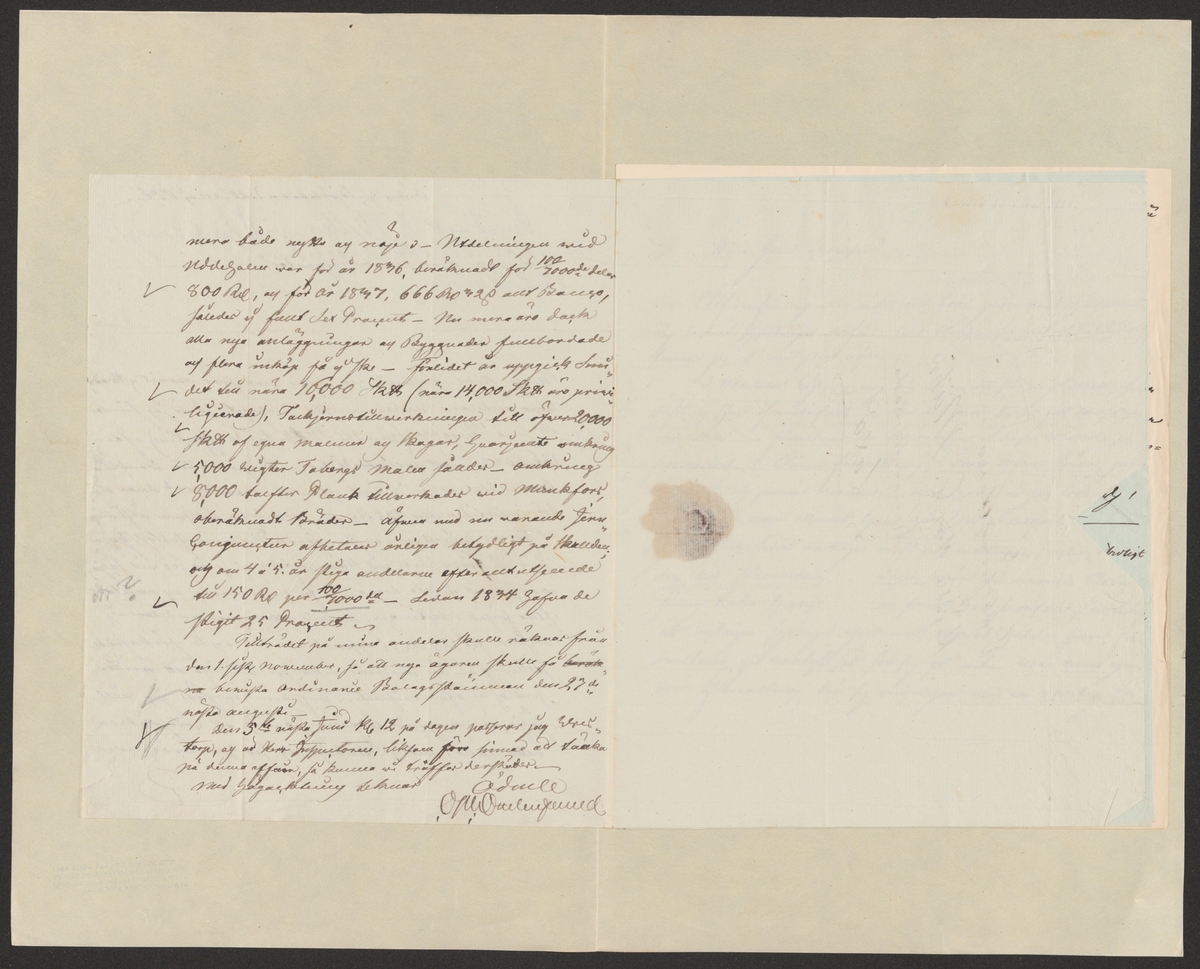 mera både nytta och nöje? – Utdelningen wid
Uddeholm war för år 1836, beräknadt för 100/7000de delar
800 Rd, och för år 1837, 666 Rd 32 s allt Banco,
således ej fullt Sex Procent – Nu mera äro dock
alla nya anläggningar och Byggnader fullbordade
och flera inköp få ej ske – förlidet år uppgick Smi-
det till nära 16,000 Sk℔ (nära 14,000 Sk℔ äro privi-
ligierade), Tackjernstillwerkningen till öfwer 20,000
Sk℔ af egna malmer och skogar, hwarjemte omkring
5,000 wigter Tabergs Malm såldes – omkring
8,000 tolfter Plank tillwerkades wid Munkfors,
oberäknadt Bräder – Äfwen med nu warande Jern
Conjunctur afbetares årligen betydligt på Skulden,
och om 4 á 5. år stiga andelarne efter allt utseende
till 150 Rd per 100/7000 del – Sedan 1834 hafwa de
stigit 25 Procent
Tillträdet på mina andelar skulle räknas från
den 1. sistl. November, så att nya ägaren skulle få beräk-
na bewista Ordinarie Bolagsstämman den 27 de
nästa Augusti –
Den 5te nästa Juni kl 12 på dagen passerar jag
torp, och om Herr Inspectoren, liksom förr sinnad att tänka
på denna affair, så kunna wi träffas derstädes. –
Med högachtning tecknar
Ödmle
troligt